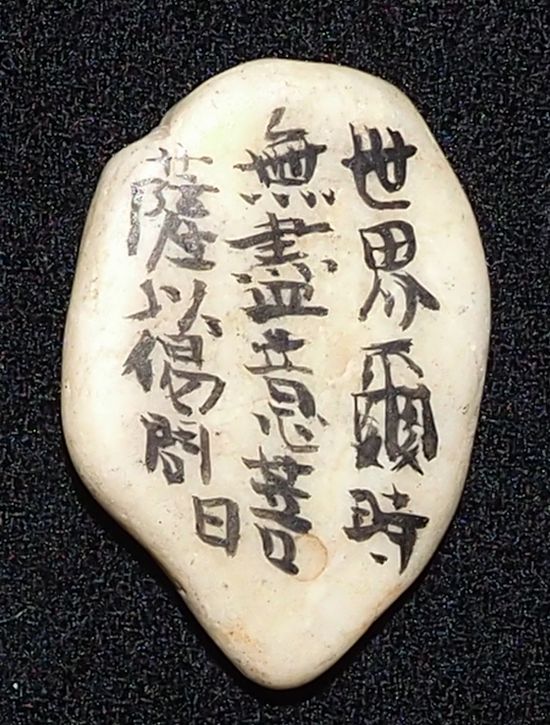 世界爾時
無盡意菩
薩以偈問
曰